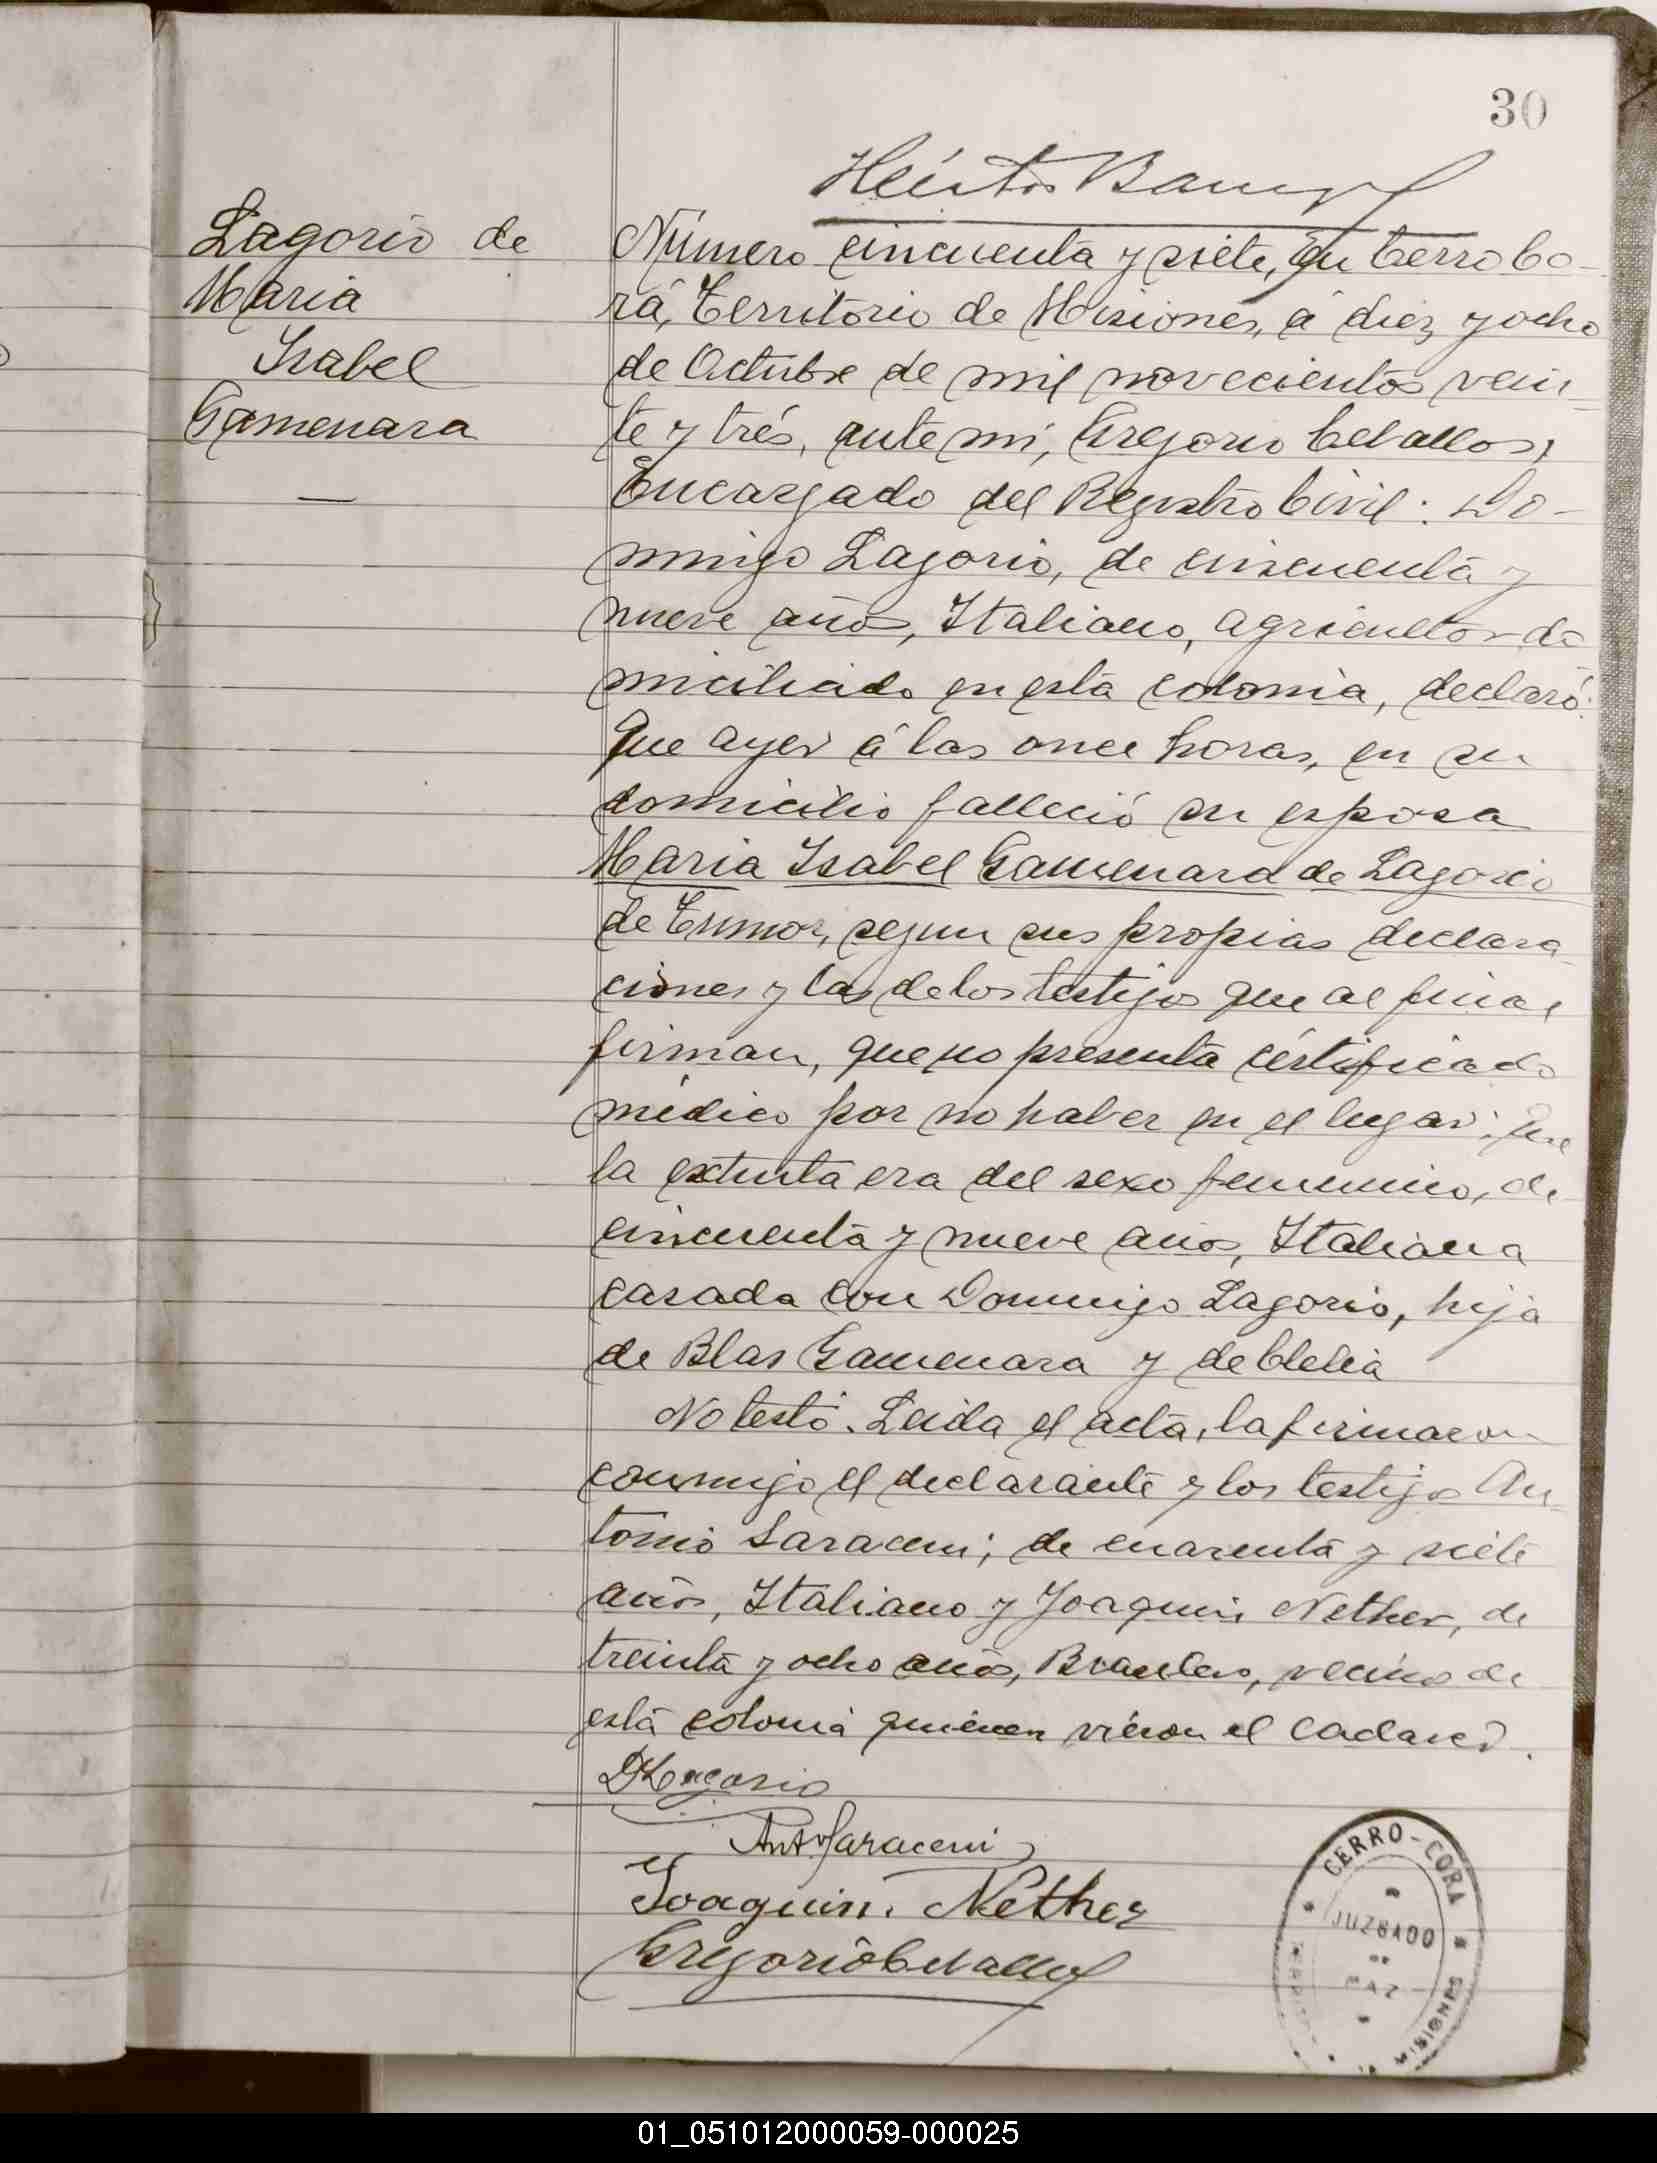 30
Héctor
Lagorio de
Maria
Isabel
Gamenara
—
Número cincuenta y siete, En Cerro Co-
rá, Territorio de Misiones, á diez y ocho
de Octubre de mil novecientos vein-
te y trés, ante mi, Gregorio Cevallos,
Encargado del Registro Civil: Do-
mingo Lagorio, de cincuenta y
nueve años, Italiano, agricultor do
miciliado en esta colonia, declaró:
Que ayer á las once horas, en su
domicilio falleció su esposa
Maria Isabel Gamenara de Lagorio
de Tumor, segun sus propias declara
ciones y las de los testigos que al final
firman, que no presenta certificado
médico por no haber en el lugar; Que
la extinta era del sexo femenino, de
cincuenta y nueve años, Italiana
casada con Domingo Lagorio, hija
de Blas Gamenara y de Clelia
No testó. Leida el acta, la firmaron
conmigo el declarante y los testigos An-
tonio Saraceni; de cuarenta y siete
años, Italiano y Joaquin Nether, de
treinta y ocho años, Brasilero, vecinos de
esta colonia quienes vieron el cadaver.
D Lagorio
Ant Saraceni
Joaquin. Nether
Gregorio Cevallos
CERRO-CORA
JUZGADO
DE
PAZ
MISIONES
01_051012000059-000025